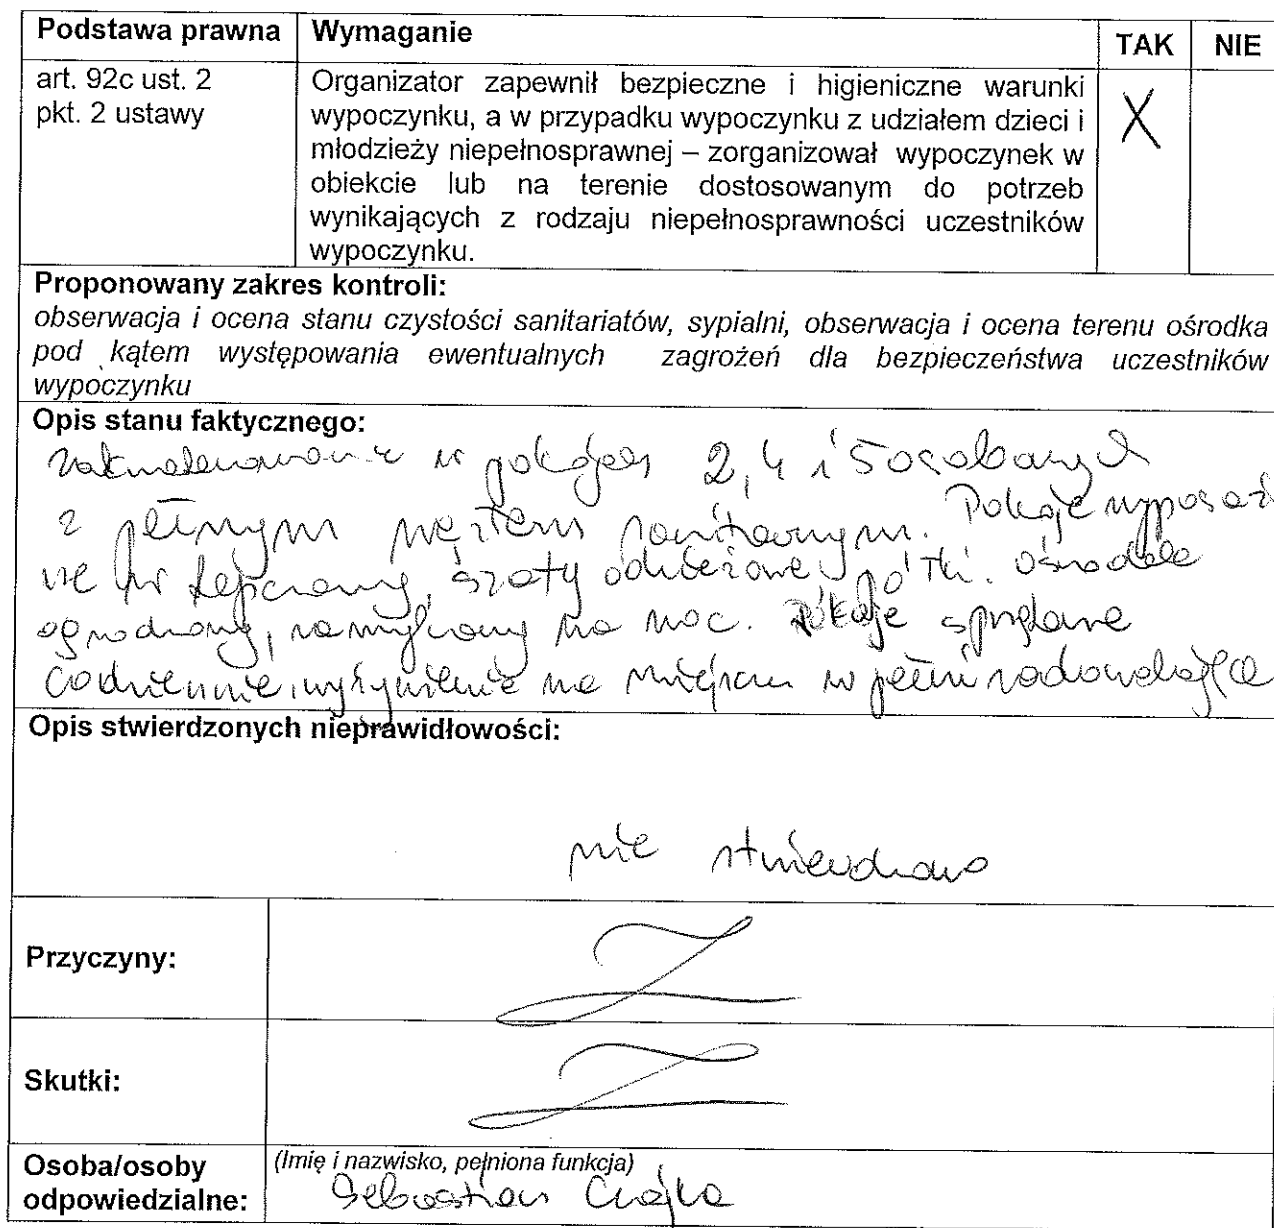 Podstawa prawna Wymaganie TAK NIE
art. 92c ust. 2
pkt. 2 ustawy
Organizator zapewnił bezpieczne i higieniczne warunki
wypoczynku, a w przypadku wypoczynku z udziałem dzieci i
młodzieży niepełnosprawnej – zorganizował wypoczynek w
obiekcie lub na terenie dostosowanym do potrzeb
wynikających z rodzaju niepełnosprawności uczestników
wypoczynku.
X
Proponowany zakres kontroli:
obserwacja i ocena stanu czystości sanitariatów, sypialni, obserwacja i ocena terenu ośrodka
pod kątem występowania ewentualnych zagrożeń dla bezpieczeństwa uczestników
wypoczynku
Opis stanu faktycznego:
zakwaterowanie w pokojach 2, 4 i 5 osobowych
z pełnym węzłem sanitarnym. Pokoje wyposażo
ne w tapczany, szafy odzieżowe, półki. Ośrodek
ogrodzony, zamykany na noc. Pokoje sprzątane
codziennie, wyżywienie na miejscu w pełni zadowalające
Opis stwierdzonych nieprawidłowości:
nie stwierdzono
Przyczyny:
Skutki:
Osoba/osoby
odpowiedzialne:
(Imię i nazwisko, pełniona funkcja)
Sebastian